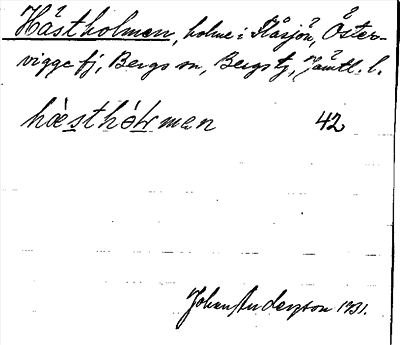 Hästholmen, holme i Flåsjön, Öster-
vigge fj, Bergs sn, Bergs tg, Jämtl. l.
hæ̀sthòłmen 42
Johan Anderzson 1931.